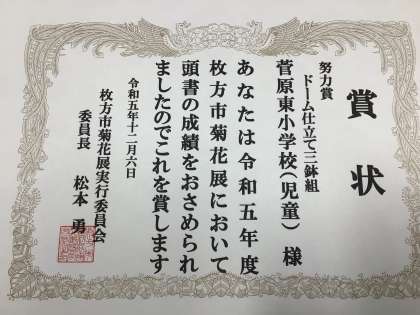 賞状
努力賞
ドーム仕立て三鉢組
菅原東小学校(児童)様
あなたは令和五年度
枚方市菊花展において
頭書の成績をおさめられ
ましたのでこれを賞します
令和五年十二月六日
枚方市菊花展実行委員会
委員長 松本 勇